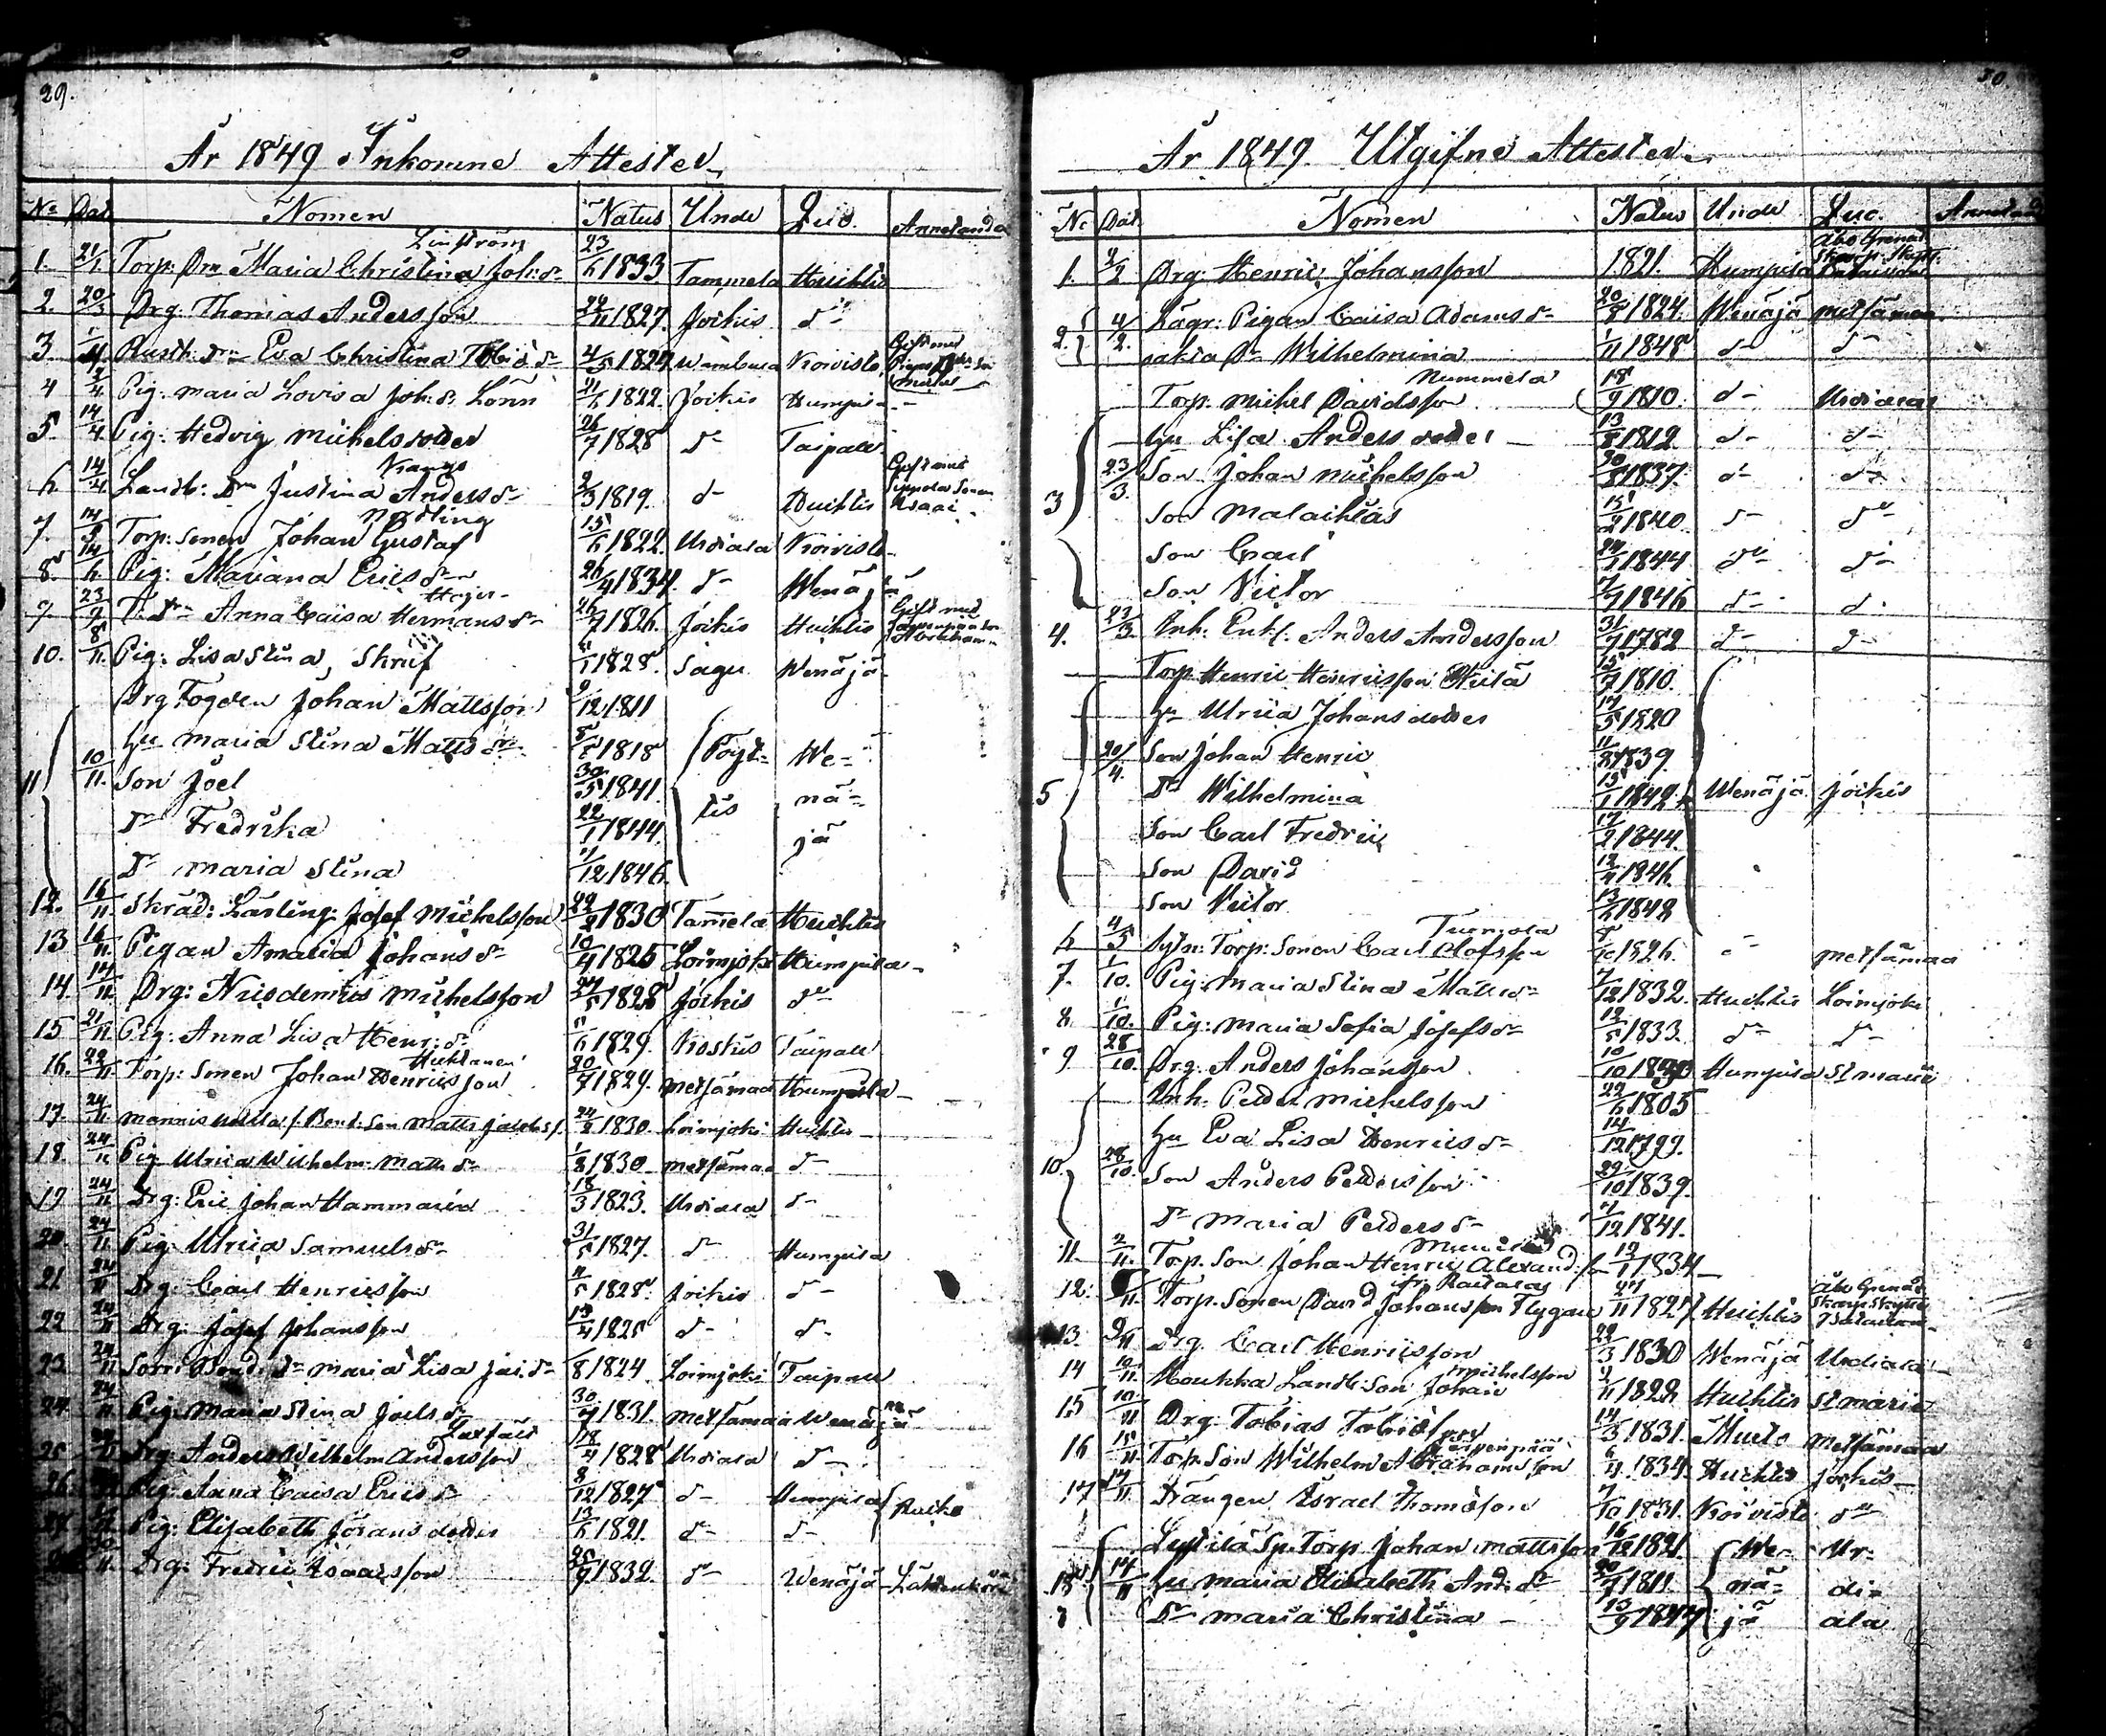 29.
År 1849 Inkomne Attester
No Dat. Nomen Natus Unde Quo. Annotanda
Linström
1. 21/1 Torp: Dr Maria Christina Joh: dr 23/6 1833 Tammela Huichtis
2. 20/3 Drg: Thomas Andersson 1827. Jockis do
3. Rusth: dr Eva Christina Tobid dr 4/5 1824 Koivisto Gift med
4 Pig: Maria Lovisa Joh: d. Lönn 1822. Jockis Humpila
5. 14/4 Pig: Hedvig Michelsdotter 26/7 1828 do Taipale
Kangs
6. 14/4 Landb: Dr Justina Anders dr 2/3 1819. do Huichtis Gift med Seppälä Sonen Isaac
Nordling
7. 14/5 Torp: Sonen Johan Gustaf 15/6 1822. Urdiala Koivisto
8. 14/6 Pig: Mariana Erics dr 26/4 1834. do Wenäjä
9. 23/9 Dr Anna Caisa Hermans dr 26/7 1826. Jockis Huichtis Gift med Abraham
10. 8/11. Pig: Lisa Stina Skruf 1828. Sagu Wenäjä
Drg Fogden Johan Mattsson 9/12 1811
11 10/11. hu Maria Stina Matts dr 1818 Pöyt= We=
Son Joel 30/5 1841. tis nä=
Dr Fredrika 22/1 1844. jä
Dr Maria Stina 1846.
12. 16/11. Skräd: Lärling: Josef Michelsson 22/2 1830 Tamela Huichtis
13 16/11. Pigan Amalia Johans dr 10/4 1825 Loimjoki Humpila
14. 14/11. Drg: Nicodemus Michelsson 1828 Jockis do
15 21/11. Pig: Anna Lisa Henr: dr 1829. Koskis Taipale
16. 22/11. Torp: Sonen Johan Henricsson 20/7 1829. Metsämaa Humpila
17. 24/11 Bond: Son Matts 24/2 1830. Loimjoki Huichtis
18. 24/11 Pig Ulrica Wilhelm: Matts dr 1/2 1830 Metsämaa do
19 24/11 Drg: Eric Johan Hammarén 18/3 1823. Urdiala do
20 24/11. Pig: Ulrica Samuels dr 31/5 1827. do Humpila
21 24/11 Drg: Carl Henricsson 1828. Jockis do
22 24/11 Drg: Josef Johansson 1825 do do
23 24/11 Bond: dr Maria Lisa 1824. Loimjoki Taipale
24 24/11 Pig: Maria Stina Joels dr 30/9 1831. Metsämaa Wenäjä
25 Drg: Anders Wilhelm Andersson 18/4 1828 Urdiala do
26 Pig: Anna Caisa Erics dr 8/12 1827 do Humpila
27 Pig: Elisabeth Görans dotter 13/6 1821. do do
Drg: Fredric Isaacsson 25/9 1832. do Wenäjä
50.
År 1849. Utgifne Attester.
No Dat. Nomen Natus Unde Quo. Annotanda
1. 2/2 Drg: Henric Johansson 1821. Humpila Åbo Grenad. Skarp Skytt. Bataillon
2. 4/2. Lägr: Pigan Caisa Adams dr 20/8 1824. Wenäjä Metsämaa
oäkta Dr Wilhelmina 1/11 1848 do do
Nummela
3 23/3. Torp. Michel Davidsson 18/9 1810. do Urdiala
hu Lisa Anders dotter 13/8 1812 do do
Son Johan Michelsson 30/8 1837. do do
Son Malachias 15/2 1840. do do
Son Carl 1844 do do
Son Victor 1846 do do
4. 23/3. Inh: Enkl: Anders Andersson 31/7 1782 do do
5 20/4. Torp Henric Henricsson 15/7 1810.
hu Ulrica Johans dotter 17/5 1820
Son Johan Henric 1839.
Dr Wilhelmina 15/1 1842 Wenäjä Jockis
Son Carl Fredric 1844.
Son David 1846.
Son Victor 1848
6 4/5 Sytn: Torp: Sonen Carl Olofsson 1826. Metsämaa
7. 1/10. Pig: Maria Stina Matts dr 7/12 1832. Huichtis Loimjoki
8. 1/10. Pig: Maria Sofia Josefs dr 12/5 1833. do do
9 28/10. Drg. Anders Johansson 10/10 1830 Humpila St Marie
10. 28/10. Inh. Petter Michelsson 22/6 1805
hu Eva Lisa Henrics dr 14/12 1799.
Son Anders Pettersson 29/10 1839.
Dr Maria Petters dr 1841.
11. 2/11. Torp. Son Johan Henric Alexand: 12/1 1834
12. Torp. Sonen David Johansson Flygare 1827 Huichtis Åbo Grenad. Skarp Skytte Bataillon
13. 9/11 Drg. Carl Henricsson 22/3 1830 Wenäjä Urdiala
14 10/11. Moukka Landb: Son Johan Michelsson 1822 Huichtis St Marie
15 10/11 Drg: Tobias Tobiasson 14/3 1831. Murto Metsämaa
16 15/11. Torp. Son Wilhelm Abrahamsson 6/4 1834. Huichtis Jockis
17 17/11 Drängen Israel Thomasson 7/10 1831. Koivisto do
18 17/11 Sp. Torp. Johan Mattsson 16/12 1821. We- Ur-
hu Maria Elisabeth And. dr 1811. nä= di=
Dr Maria Christina 1847 jä ala